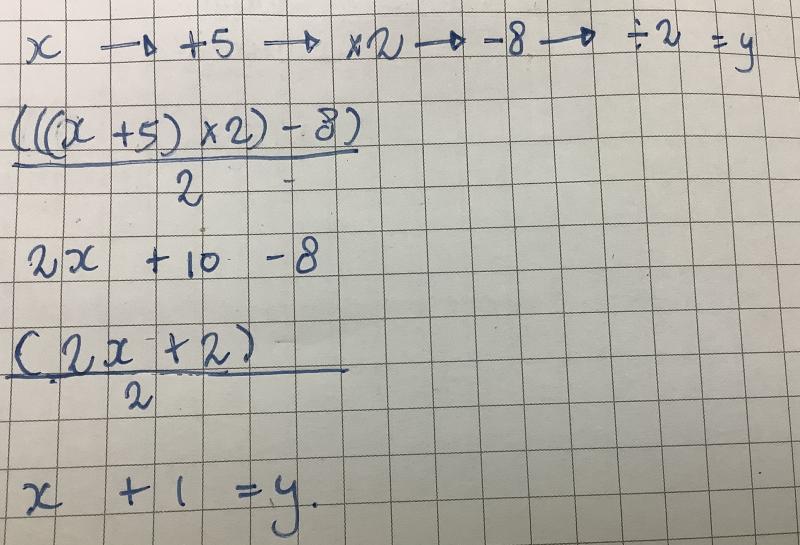 x → +5 → ×2 → -8 → ÷2 = y
(((x +5) ×2) - 8)
2
2x + 10 - 8
(2x + 2)
2
x + 1 = y.